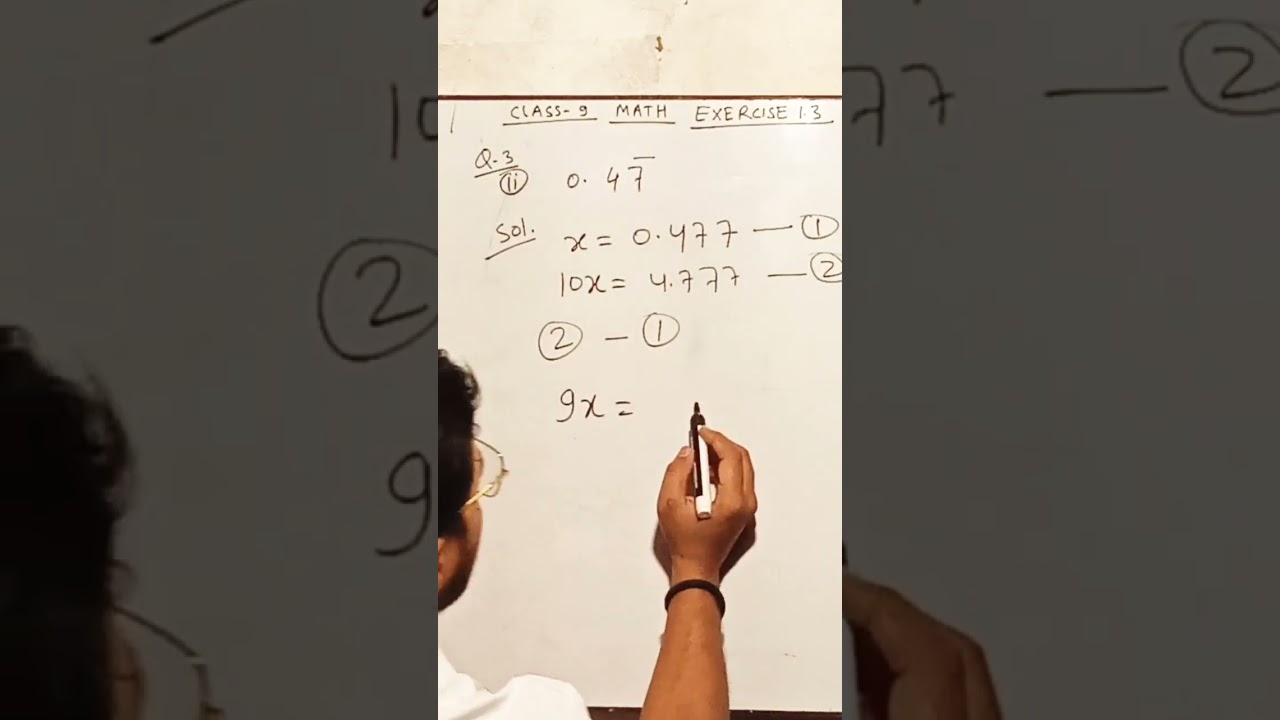 CLASS-9 MATH EXERCISE 1.3
Q.3
(ii) 0.47̅
Sol. x = 0.477 — ①
10x = 4.777 — ②
② — ①
9x =